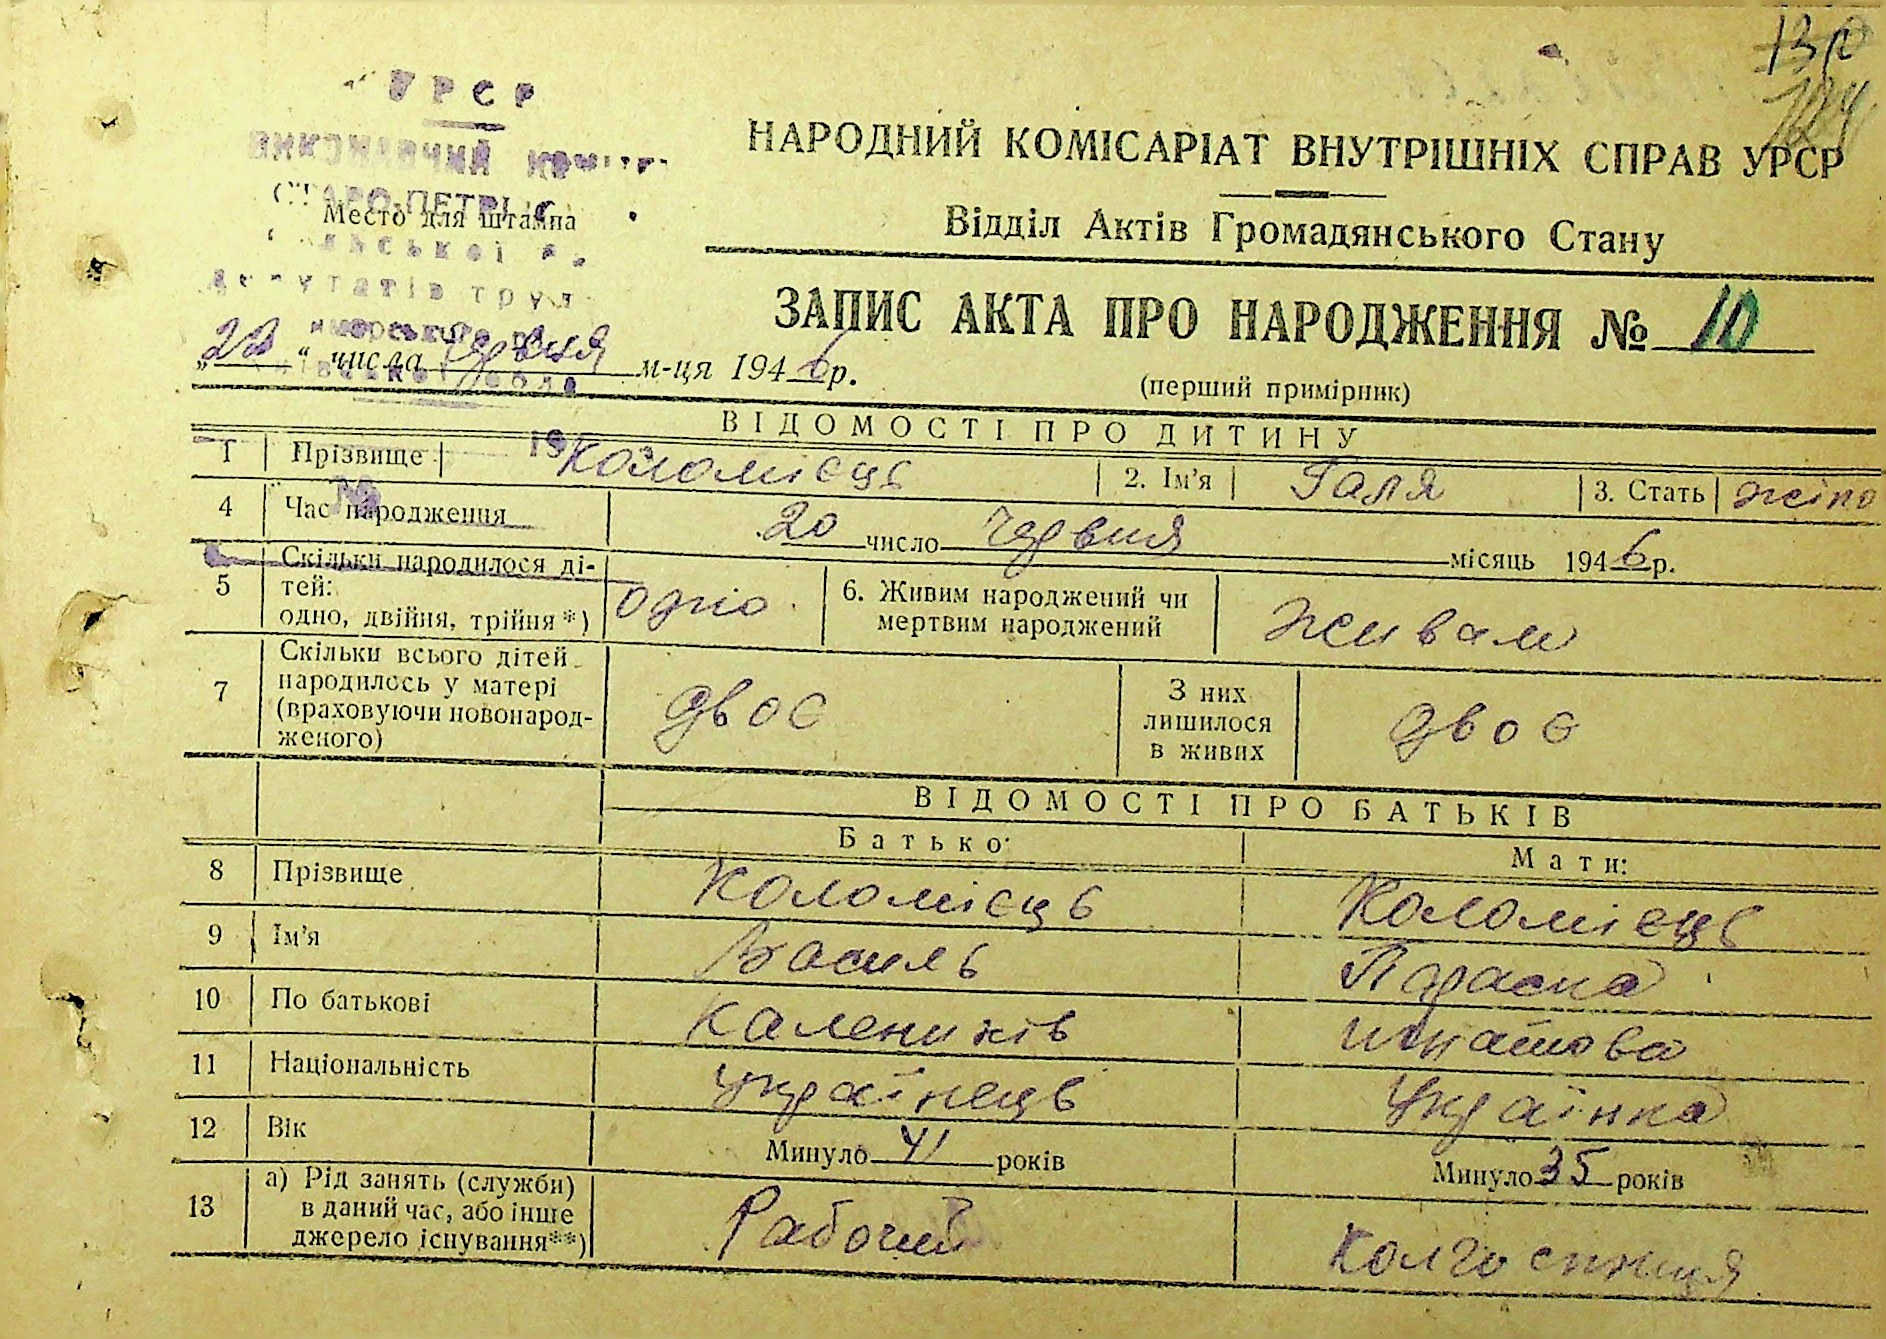 130
УРСР
НАРОДНИЙ КОМІСАРІАТ ВНУТРІШНІХ СПРАВ УРСР
Место для штампа
Відділ Актів Громадянського Стану
ЗАПИС АКТА ПРО НАРОДЖЕННЯ № 10
„22“ числа червня м-ця 1946 р.
(перший примірник)
ВІДОМОСТІ ПРО ДИТИНУ
1 Прізвище Коломієць 2. Ім'я Галя 3. Стать жіно
4 Час народження 20 число червня місяць 1946 р.
5 Скільки народилося ді-
тей:
одно, двійня, трійня*) одно 6. Живим народжений чи
мертвим народжений живам
7 Скільки всього дітей
народилось у матері
(враховуючи новонарод-
женого) двоє З них
лишилося
в живих двоє
ВІДОМОСТІ ПРО БАТЬКІВ
Батько: Мати:
8 Прізвище Коломієць Коломієць
9 Ім'я Василь Параска
10 По батькові Калеників Игнатова
11 Національність Українець Українка
12 Вік Минуло 41 років Минуло 35 років
13 а) Рід занять (служби)
в даний час, або інше
джерело існування**) Рабочий Колгоспниця